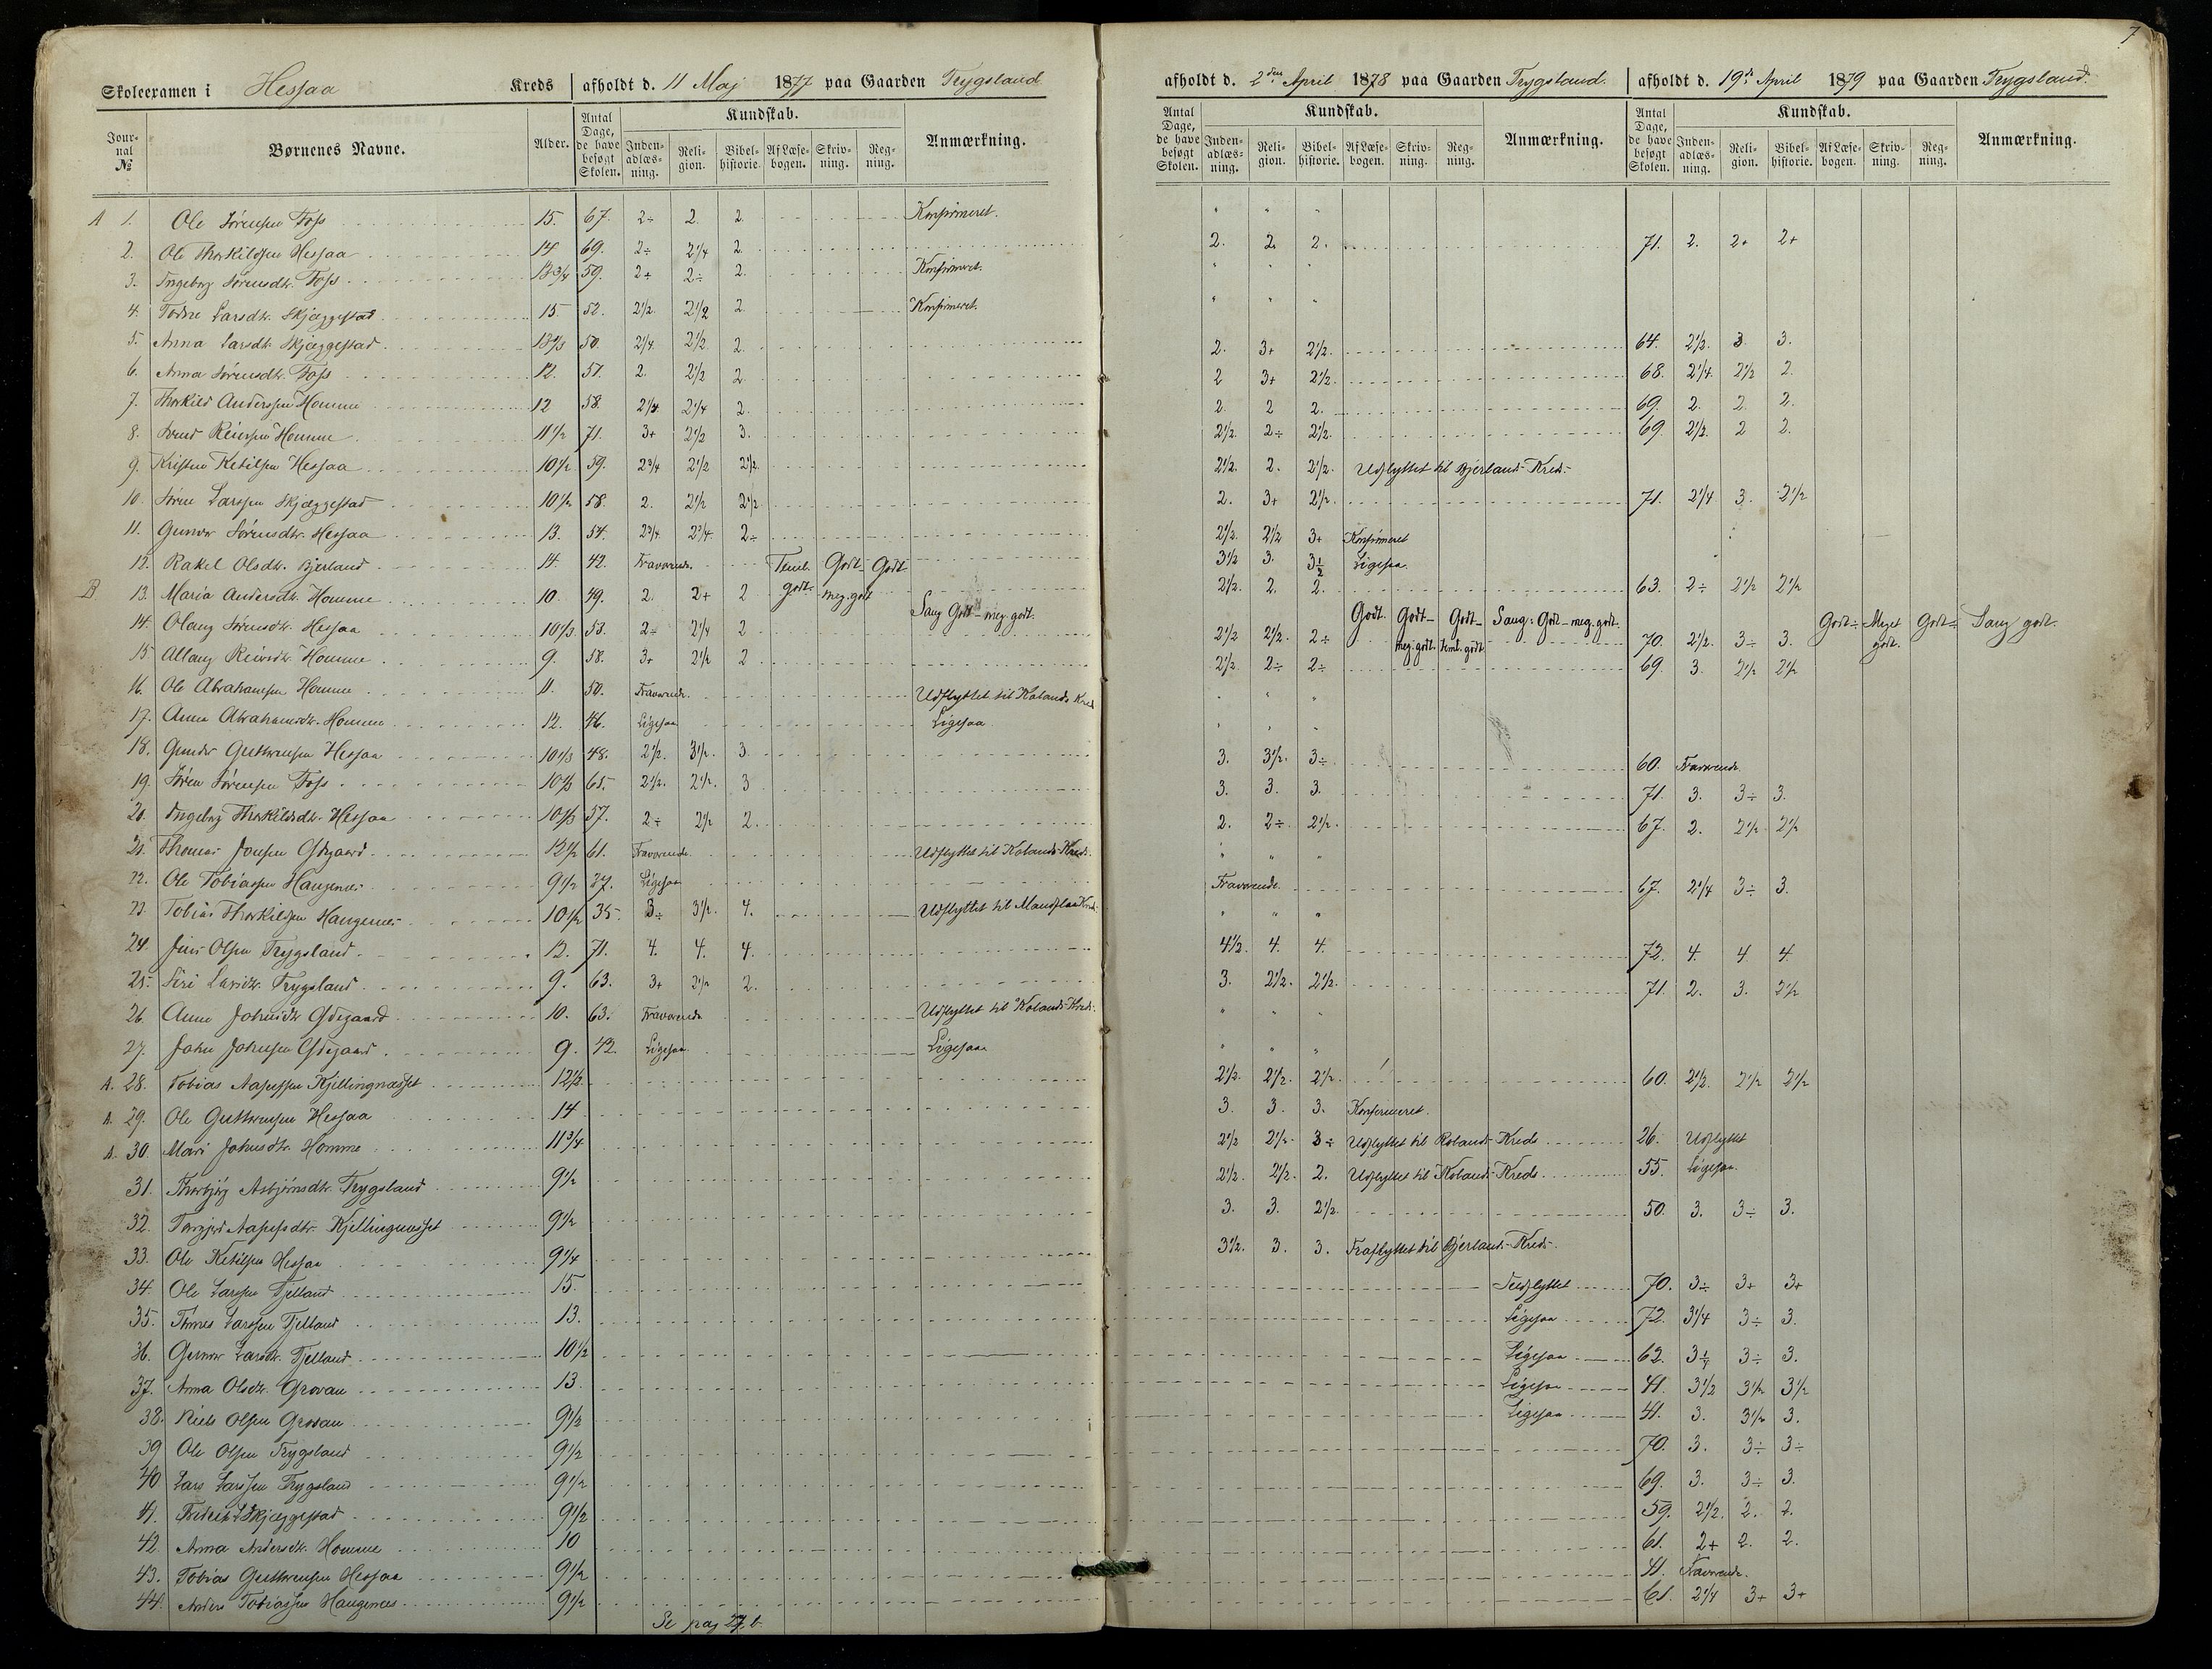 7
Skoleexamen i Hessaa Kreds afholdt d. 11 Maj 1877 paa Gaarden Trygsland
afholdt d. 2den April 1878 paa Gaarden Trygsland. afholdt d. 19de April 1879 paa Gaarden Trygsland.
Journal № Børnenes Navne. Alder. Antal Dage, de have besøgt Skolen. Kundskab. Indenadlæsning. Religion. Bibelhistorie. Af Læsebogen. Skrivning. Regning. Anmærkning.
Antal Dage, de have besøgt Skolen. Kundskab. Indenadlæsning. Religion. Bibelhistorie. Af Læsebogen. Skrivning. Regning. Anmærkning.
Antal Dage, de have besøgt Skolen. Kundskab. Indenadlæsning. Religion. Bibelhistorie. Af Læsebogen. Skrivning. Regning. Anmærkning.
A 1. Ole Sørensen Foss 15. 67. 2÷ 2. 2. Konfirmeret.
2. Ole Thorkildsen Hessaa 14 69. 2÷ 2 1/4 2. 2. 2. 2. 71. 2. 2+ 2+
3. Ingeborg Sørensdtr. Foss 13 3/4 59. 2+ 2÷ 2. Konfirmeret.
4. Todne Larsdtr. Skjæggestad 15. 52. 2 1/2 2 1/2 2. Konfirmeret.
5. Anna Larsdtr. Skjæggestad 50. 2 1/4 2 1/2 2. 2. 3+ 2 1/2. 64. 2 1/2. 3 3.
6. Anna Sørensdtr. Foss 12. 57. 2. 2 1/2 2 2 3+ 2 1/2. 68. 2 1/4. 2 1/2 2.
7. Thorkild Anderssen Homme 12 58. 2 1/4 2 1/4 2. 2. 2 2. 69. 2. 2. 2.
8. Reiersen Homme 11 1/2 71. 3+ 2 1/2 3. 2 1/2. 2÷ 2 1/2. 69. 2 1/2. 2 2.
9. Kristen Ketilsen Hessaa 10 1/2 59. 2 3/4 2 1/2 2 1/2 2 1/2. 2. 2 1/2. Udflyttet til Bjerlands-Kreds
10. Søren Larssen Skjæggestad 10 1/2 58. 2. 2 1/2 2 1/2 2. 3+ 2 1/2. 71. 2 1/4 3. 2 1/2
11. Gunvor Sørensdtr. Hessaa 13. 54. 2 3/4 2 1/4 2÷ 2 1/2. 2 1/2 3+ Konfirmeret
12. Rakel Olsdtr. Bjerland 14. 42. Fraværende. Teml. godt. Godt- meg. godt Godt 3 1/2 3. 3 1/2 Ligesaa.
B 13. Maria Andersdtr. Homme 10. 49. 2. 2+ 2 Sang Godt-meg. godt. 2 1/2. 2. 2. 63. 2÷ 2 1/2 2 1/2
14. Olaug Sørensdtr. Hessaa 10 1/3 53. 2÷ 2 1/4 2 2 1/2 2 1/2. 2÷ Godt. Godt- meg. godt. Godt- teml. godt Sang: Godt-meg. godt. 70. 2 1/2. 3÷ 3. Godt÷ Meget godt. Godt÷ Sang godt.
15. Allaug Reiersdtr. Homme 9. 58. 3+ 2 1/2 2 2 1/2. 2÷ 2÷ 69. 3. 2 1/2 2 1/2
16. Ole Abrahamsen Homme 11. 50. Fraværende. Udflyttet til Kolands Kred
17. Anne Abrahamsdtr. Homme 12. 46. Ligesaa Ligesaa
18. Gunder Guttormsen Hessaa 10 1/3 48. 2 1/2. 3 1/2. 3. 3. 3 1/2. 3÷ 60. Fraværende.
19. Søren Sørensen Foss 65. 2 1/2. 2 1/2. 3 3. 3. 3. 71. 3. 3÷ 3.
20. Ingeborg Thorkildsdtr. Hessaa 57. 2÷ 2 1/2 2. 2. 2÷ 2 1/2. 67. 2. 2 1/2 2 1/2
21. Thomas Jonsen Ødegaard 12 1/2 61. Fraværende. Udflyttet til Kolands-Kreds.
22. Ole Tobiassen Haugenes 9 1/2 27. Ligesaa Fraværende. 67. 2 1/4 3÷ 3.
23. Tobias Thorkildsen Haugenes 10 1/2 35. 3÷ 3 1/2. 4. Udflyttet til Mandflaa Kreds.
24. Jens Olsen Trygsland 12. 71. 4. 4. 4. 4 1/2. 4. 4. 72. 4. 4 4.
25. Siri Larsdtr. Trygsland 9. 63. 3+ 2 1/2 2. 3. 2 1/2. 2 1/2. 71. 2. 3. 2 1/2
26. Anne Johnsdtr Ødegaard 10. 63. Fraværende Udflyttet til Kolands-Kreds.
27. John Johnsen Ødegaard 9. 42. Ligesaa. Ligesaa
A. 28. Tobias Kjellingnæsset 12 1/2. 2 1/2. 2 1/2. 2 1/2. 60. 2 1/2. 2 1/2 2 1/2
A. 29. Ole Guttormsen Hessaa 14 3. 3. 3. Konfirmeret.
A. 30. Mari Johnsdtr. Homme 11 3/4 2 1/2 2 1/2. 3÷ Udflyttet til Kolands-Kreds 26. Udflyttet
31. Thorbjørg Asbjørnsdtr. Trygsland 9 1/2 2 1/2. 2 1/2. 2. Udflyttet til Kolands-Kreds 55. Ligesaa.
32. Kjellingnæsset 9 1/2 3. 3. 2 1/2. 50. 3. 3÷ 3.
33. Ole Ketilsen Hessaa 9 1/4 3 1/2. 3. 3. Fraflyttet til Bjerlands-Kreds.
34. Ole Larssen Fjelland 15. Indflyttet 70. 3÷ 3+ 3+
35. Tønnes Larssen Fjelland 13. Ligesaa 72. 3 1/4 3÷ 3.
36. Gunvor Larsdtr. Fjelland 10 1/2 Ligesaa 62. 3÷ 3.
37. Anna Olsdtr. Grovan 13 Ligesaa 41. 3 1/2 3 1/2 3 1/2
38. Niels Olsen Grovan 9 1/2 Ligesaa 41. 3. 3 1/2 3.
39 Ole Olsen Trygsland 9 1/2 70. 3. 3÷ 3÷
40 Lars Larssen Trygsland 9 1/2 69. 3. 3÷ 3.
41. Skjæggestad 9 1/2 59. 2 1/2. 2. 2.
42. Anna Andersdtr. Homme 10 61. 2+ 2. 2.
43. Tobias Guttormsen Hessaa 9 1/2 41. Fraværende.
44. Anders Tobiassen Haugenes 9 1/2 61. 2 1/4 3+ 3+
Se pag 27, b